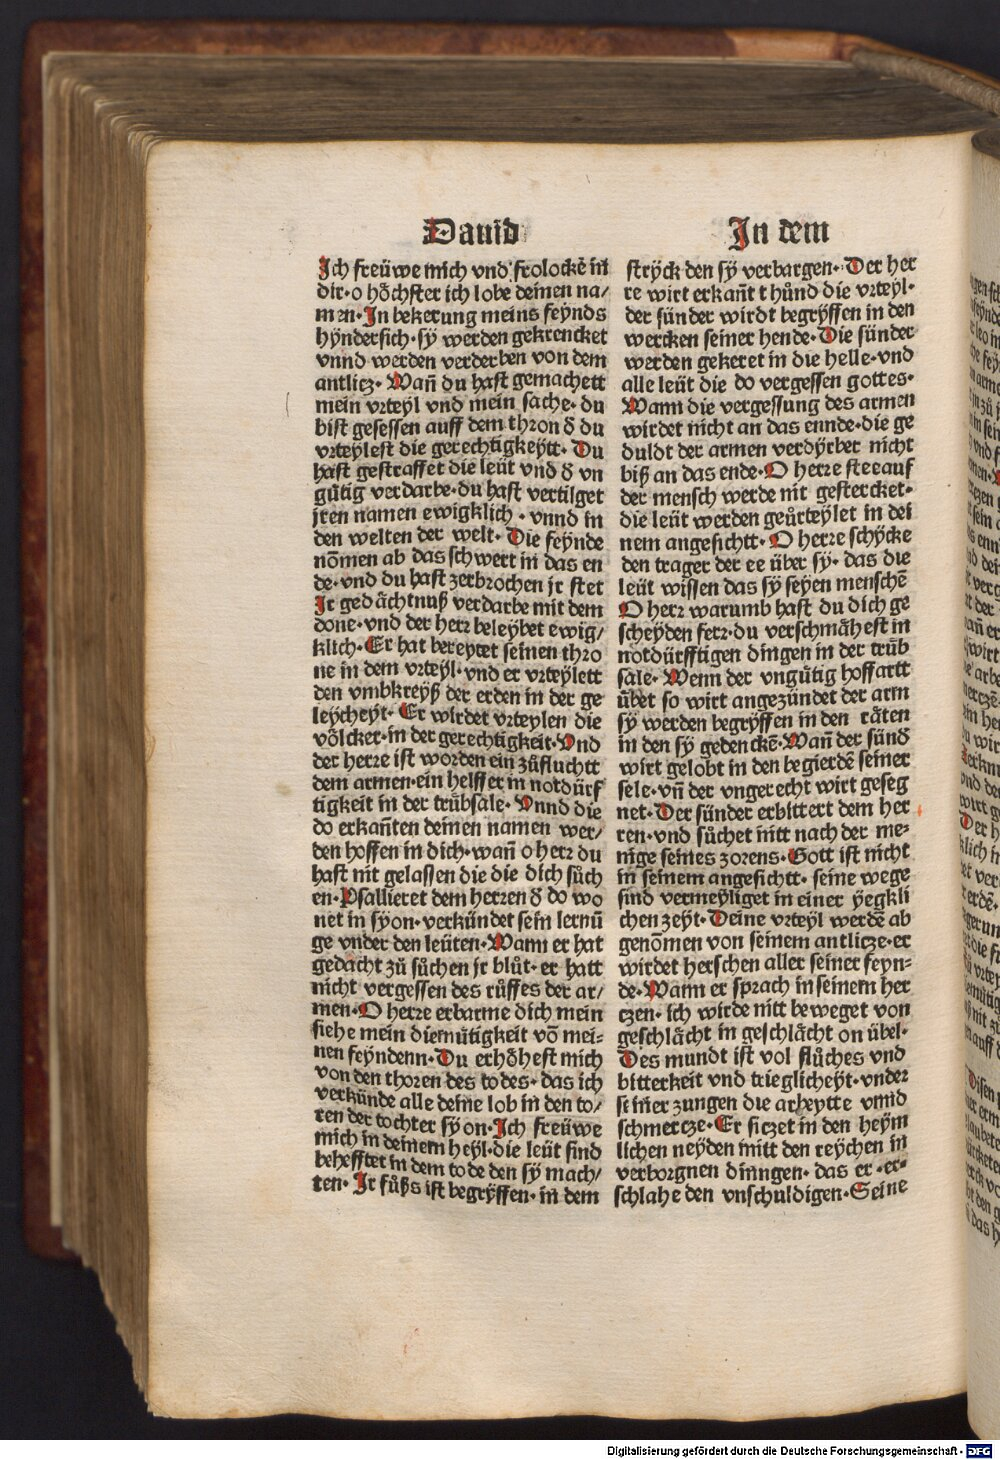 Dauid
Ich freüwe mich vnd frolockē in
dir· o hőchster ich lobe deinen na/
men· In bekerung meins feynds
hyndersich· sÿ werden gekrencket
vnnd werden verderben von dem
antlicz· Wañ du hast gemachett
mein vrteyl vnd mein sache· du
bist gesessen auff dem thron δ du
vrteylest die gerechtigkeÿtt· Du
hast gestraffet die leüt vnd δ vn
gůtig verdarbe· du hast vertilget
jren namen ewigklich · vnnd in
den welten der welt· Die feÿnde
nőmen ab das schwert in das en
de· vnd du hast zerbrochen jr stet
Ir gedächtnuß verdarbe mit dem
done· vnd der herr beleÿbet ewig/
klich· Er hat bereytet seinen thro
ne in dem vrteÿl· vnd er vrteÿlett
den vmbkreÿß der erden in der ge
leÿcheÿt· Er wirdet vrteylen die
vőlcker· in der gerechtigkeit· Vnd
der herre ist worden ein zůfluchtt
dem armen· ein helffer in notdürf
tigkeit in der trübsale· Vnnd die
do erkañten deinen namen wer/
den hoffen in dich· wañ o herr du
hast nit gelassen die die dich sůch
en· Psallieret dem herren δ do wo
net in sÿon· verkündet sein lernū
ge vnder den leüten· Wann er hat
gedacht zů sůchen jr blůt· er hatt
nicht vergessen des růffes der ar/
men· O herre erbarme dich mein
siehe mein diemütigkeit vō mei=
nen feÿndenn· Du erhőhest mich
von den thoren des todes· das ich
verkünde alle deine lob in den to/
ren der tochter sÿon· Ich freüwe
mich in deinem heÿl· die leüt sind
behefftet in dem tode den sÿ mach/
ten· Ir fůßs ist begrÿffen· in dem
In dem
strÿck den sÿ verbargen· Der her
re wirt erkañt thůnd die vrteÿl·
der sünder wirdt begrÿffen in den
wercken seiner hende· Die sünder
werden gekeret in die helle· vnd
alle leüt die do vergessen gottes·
Wann die vergessung des armen
wirdet nicht an das ennde· die ge
duldt der armen verdÿrbet nicht
biß an das ende· O herre stee auf
der mensch werde nit gestercket·
die leüt werden geürteÿlet in dei
nem angesichtt· O herre schÿcke
den trager der ee über sÿ· das die
leüt wissen das sÿ seÿen menschē
O herr warumb hast du dich ge
scheÿden ferr· du verschmähest in
notdürfftigen dingen in der trüb
sale· Wenn der vngütig hoffartt
übet so wirt angezündet der arm
sÿ werden begrÿffen in den räten
in den sÿ gedenckē· Wañ der sünδ
wirt gelobt in den begierdē seiner
sele· vñ der vngerecht wirt geseg
net· Der sünder erbittert dem her
ren· vnd sůchet nitt nach der me=
nige seines zorens· Gott ist nicht
in seinem angesichtt· seine wege
sind vermeÿliget in einer ÿegkli
chen zeÿt· Deine vrteyl werdē ab
genőmen von seinem antlicze· er
wirdet herschen aller seiner feyn=
de· Wann er sprach in seinem her
czen· ich wirde nitt beweget von
geschlächt in geschlächt on übel·
Des mundt ist vol flůches vnd
bitterkeit vnd trieglicheÿt· vnder
seiner zungen die arbeytte vnnd
schmercze· Er siczet in den heÿm
lichen neyden mitt den reÿchen in
verborgnen dinngen· das er er=
schlahe den vnschuldigen· Seine
Digitalisierung gefördert durch die Deutsche Forschungsgemeinschaft - DFG